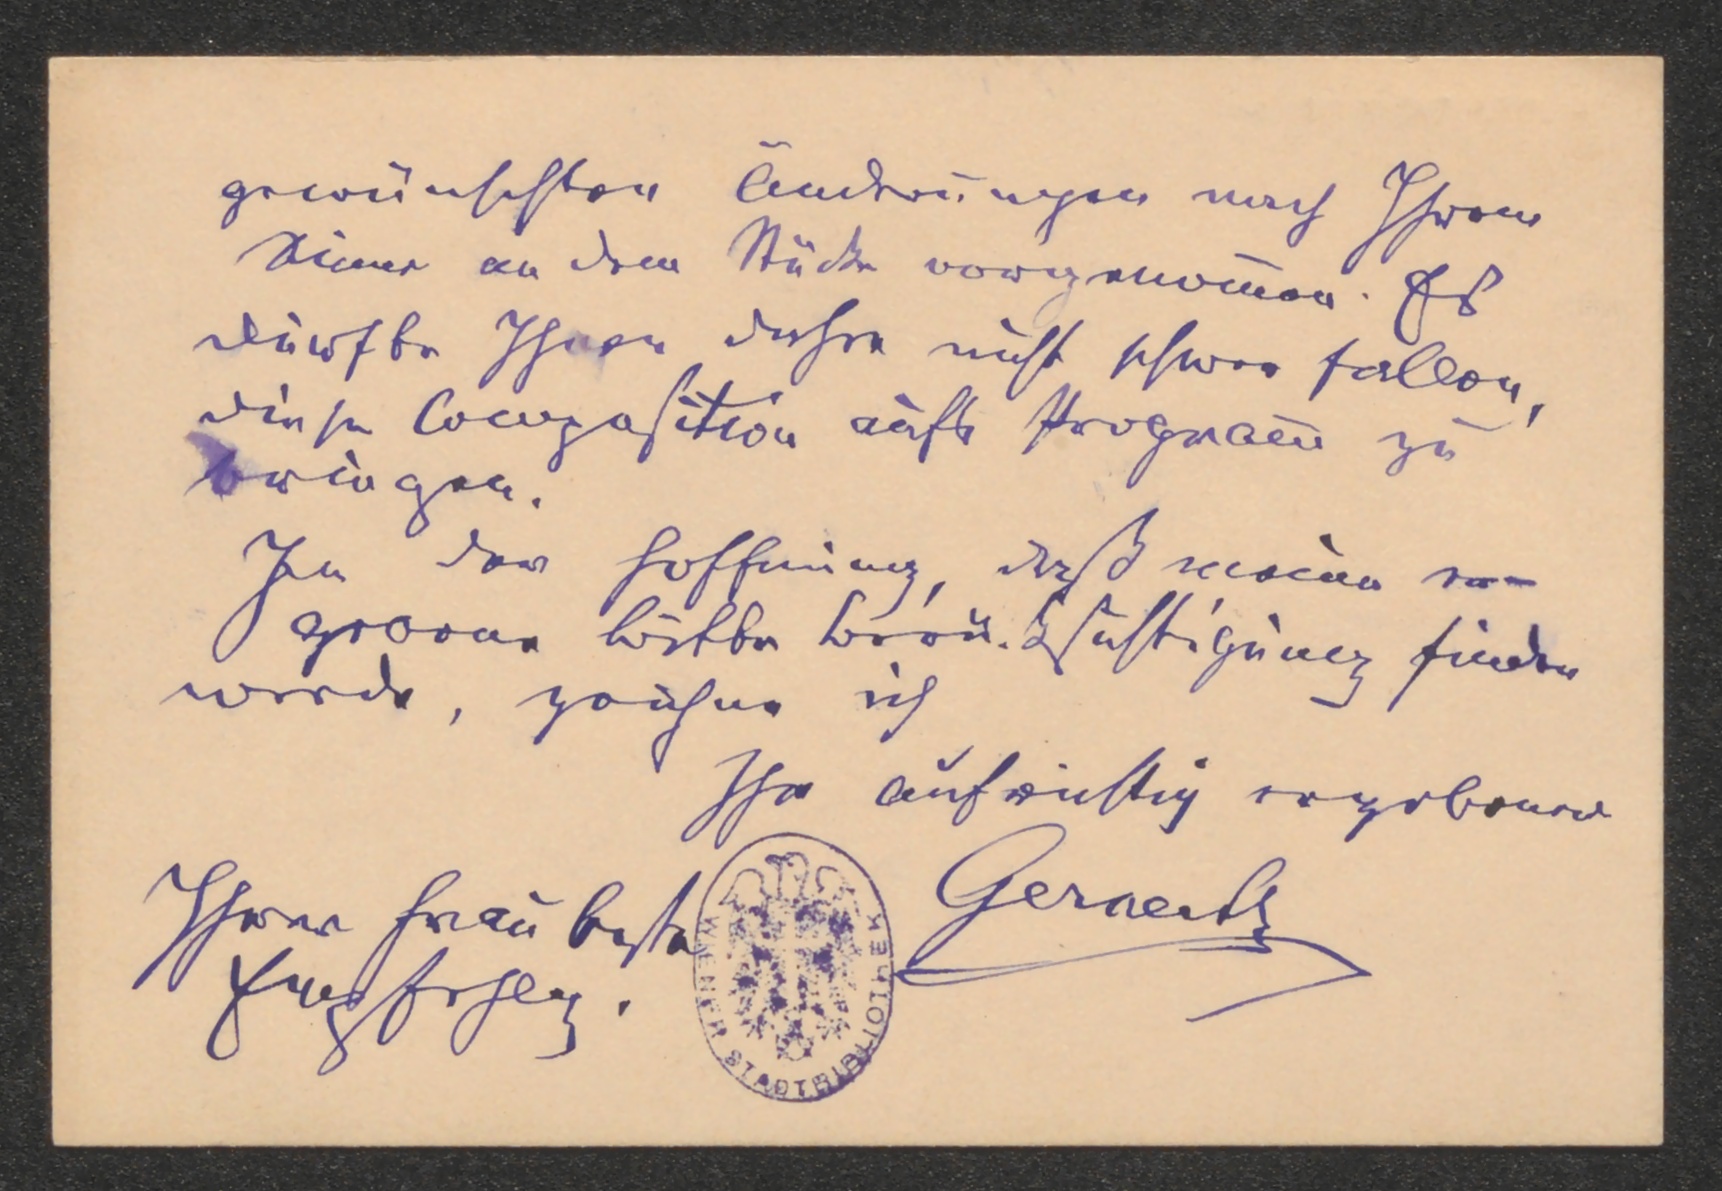 gewünschten Änderungen nach Ihrem
Sinne an dem Stücke vorgenom̅en. Es
dürfte Ihnen daher nicht schwer fallen,
diese Composition aufs Program̅ zu
bringen.
In der Hoffnung, daß meine er-
gebene Bitte Berücksichtigung finden
werde, zeichne ich
Ihr aufrichtig ergebener
Ihrer Frau beste
Empfehlg.
WIENER STADTBIBLIOTHEK